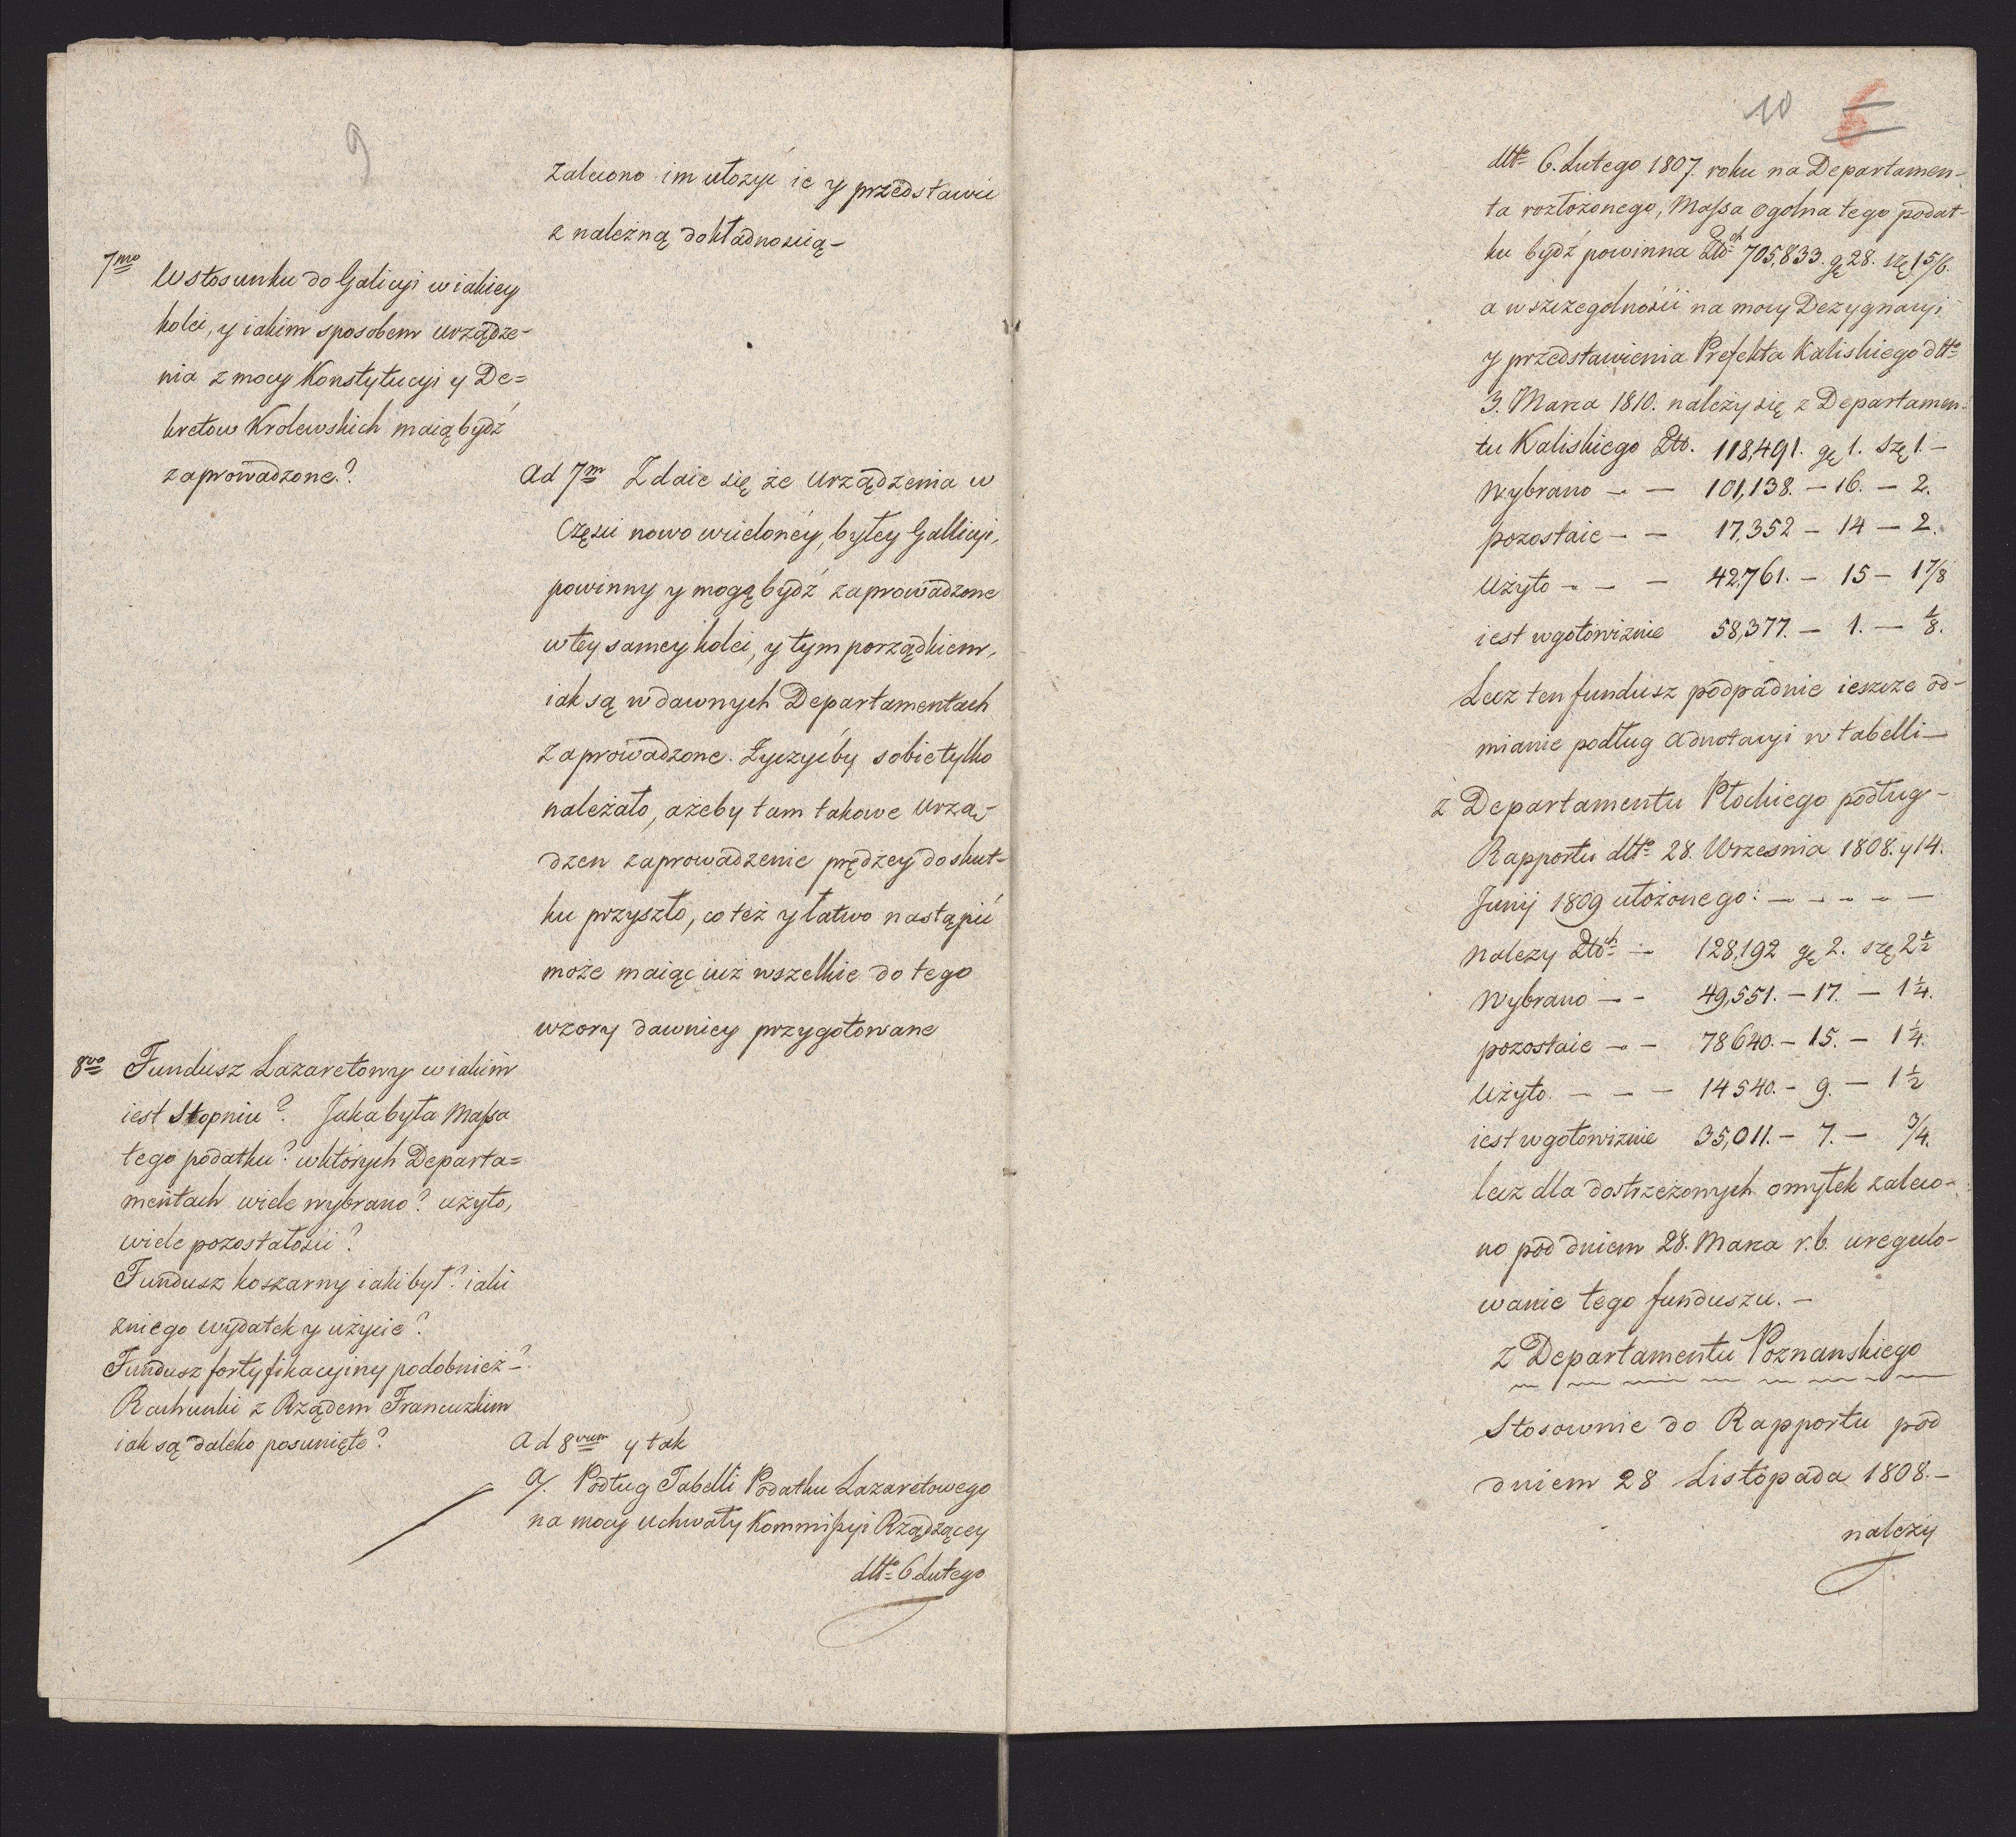 9
Zalecono im ułożyć ie y przedstawić
z należną dokładnością –
7mo W stosunku do Galicyi w iakiey
kolei, y iakim sposobem urządze-
nia z mocy Konstytucyi y De=
kretow Krolewskich maią bydź
zaprowadzone?
Ad 7m Zdaie się że urządzenia w
Części nowo wcieloney, byłey Gallicyi,
powinny y mogą bydź zaprowadzone
w tey samey kolei, y tym porządkiem,
iak są w dawnych Departamentach
zaprowadzone. Życzyćby sobie tylko
należało, ażeby tam takowe urzą-
dzen zaprowadzenie prędzey do skut-
ku przyszło, co też y łatwo nastąpić
może maiąc iuż wszelkie do tego
wzory dawniey przygotowane
8vo Fundusz Lazaretowy w iakim
iest Stopniu? Jaka była Massa
tego podatku? w ktorych Departa=
mentach wiele wybrano? użyto,
wiele pozostałości?
Fundusz koszarny iaki był? iaki
z niego wydatek y użycie?
Fundusz fortyfikacyiny podobnież –?
Rachunki z Rządem Francuzkim
iak są daleko posunięte?
Ad 8vum y tak
a/. Podług Tabelli Podatku Lazaretowego
na mocy uchwały Kommissyi Rządzącey
dtto 6 Lutego
10 6
dtto 6. Lutego 1807. roku na Departamen-
ta rozłożonego, Massa ogolna tego podat-
ku bydź powinna Złot 705,833. gę 28. szę 1 5/6.
a w szczegolności na mocy Dezygnacyi
y przedstawienia Prefekta Kaliskiego dtto
3. Marca 1810. należy się z Departamen-
tu Kaliskiego Złt. 118,491. gę 1. szę 1. –
Wybrano – – 101,138. – 16. – 2.
pozostaie – – 17,352 – 14 – 2.
Użyto – – – 42,761. – 15 – 1 7/8
iest w gotowiznie 58,377. – 1. – 1/8.
Lecz ten fundusz podpadnie ieszcze od-
mianie podług adnotacyi w tabelli –
z Departamentu Płockiego podług –
Rapportu dtto 28. Wrzesnia 1808. y 14.
Junij 1809 ułożonego: – – – – –
Należy Złot – 128,192 gę 2. szę 2 1/2
Wybrano – – 49,551. – 17. – 1 1/4.
pozostaie – – 78640. – 15. – 1 1/4.
Użyto. – – – 14540. – 9. – 1 1/2
iest w gotowiznie 35,011. – 7. – 3/4.
lecz dla dostrzeżonych omyłek zaleco-
no pod dniem 28. Marca r. b. uregulo-
wanie tego funduszu. –
z Departamentu Poznanskiego
Stosownie do Rapportu pod
dniem 28 Listopada 1808. –
należy